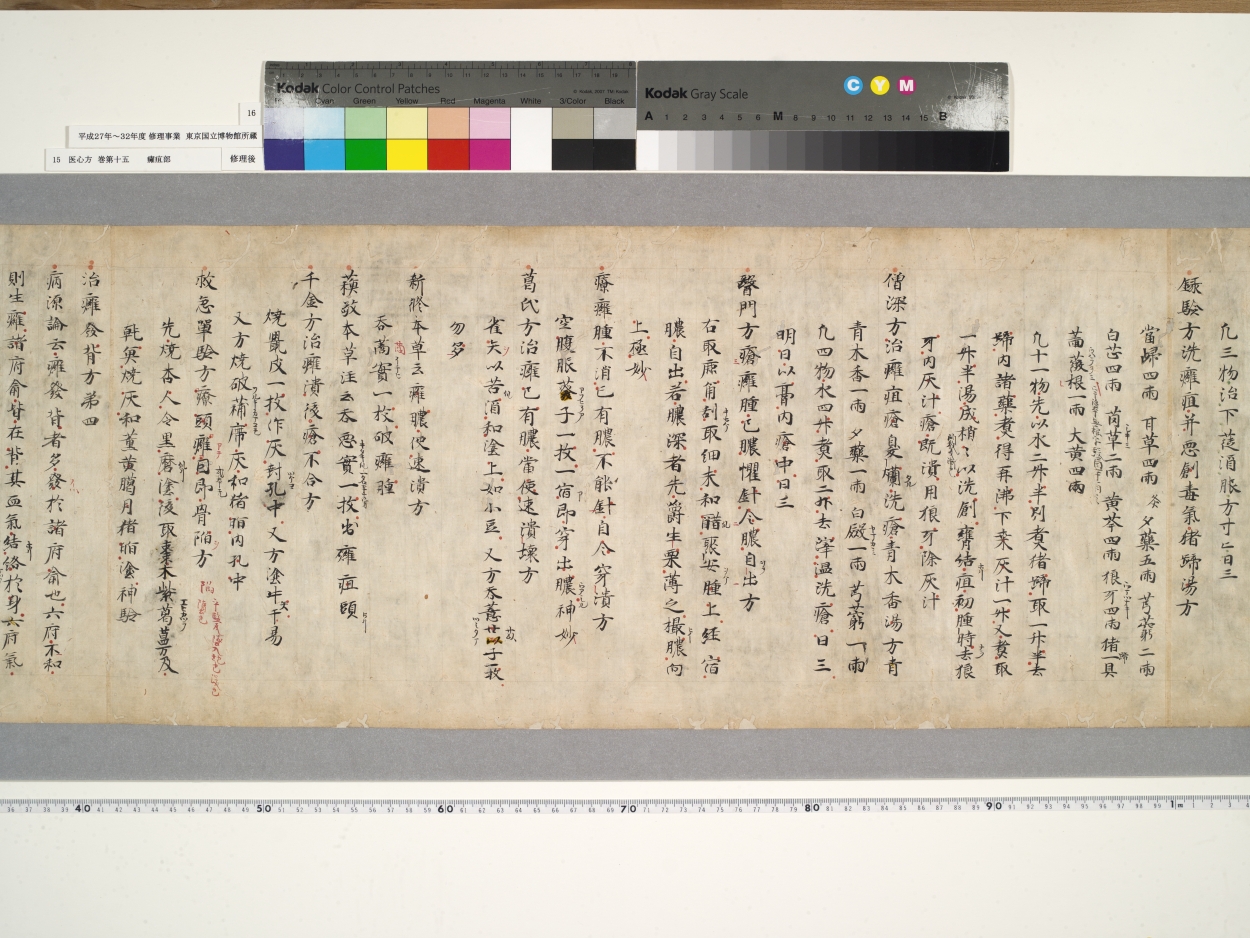 Kodak Color Control Patches
Cyan Green Yellow Red Magenta White 3/Color Black
Kodak Gray Scale
C Y M
A 1 2 3 4 5 6 M 8 9 10 11 12 13 14 15 B
16
平成27年～32年度 修理事業 東京国立博物館所蔵
15 医心方 巻第十五 癰疽部 修理後
凡三物治下莚消脹方寸匕日三
録驗方洗癰疽并悪創毒氣猪蹄湯方
當歸四兩 甘草四兩 夕藥五兩 芎藭二兩
白芷四兩 莽草二兩 黄芩四兩 狼牙四兩 猪蹄一具
薔薇根一兩 大黄四兩
凡十一物先以水二升半別煮猪蹄取一升半去
蹄内諸藥煮得再沸下桒灰汁一升又煮取
一升半湯成稍々以洗創癰結疽初腫時去狼
牙内灰汁瘡既潰用狼牙除灰汁
僧深方治癰疽瘡臭爛洗瘡青木香湯方青
青木香一兩 夕藥一兩 白蘞一兩 芎藭一兩
凡四物水四升煮取二升去滓温洗瘡日三
明日以膏内瘡中日三
醫門方療癰腫已膿懼針令膿自出方
右取鹿角刮取細末和醋裹安腫上経宿
膿自出若膿深者先爵生栗薄之撮膿向
上極妙
療癰腫不消已有膿不能針自令穿潰方
空腹服 子一枚一宿即穿出膿神妙
葛氏方治癰已有膿當使速潰壊方
雀矢以苦酒和塗上如小豆 又方吞薏苡子一枚
勿多
新修本草云癰膿使速潰方
吞 實一枚破癰腫
蘓敬本草注云吞悪實一枚出癰疽頭
千金方治癰潰後瘡不合方
燒鼠皮一枚作灰封孔中 又方塗牛
又方燒破蒲席灰和猪脂内孔中
救急單驗方療頭癰自即骨陥方
先燒杏人令黒磨塗後取 木紫葛
乾 燒灰和葦黄臈月猪脂塗神驗
治癰發背方弟四
病源論云癰發背者多發於諸府俞也六府不和
則生癰諸府俞皆在背其血氣結絡於身六府氣
40 50 60 70 80 90 1m